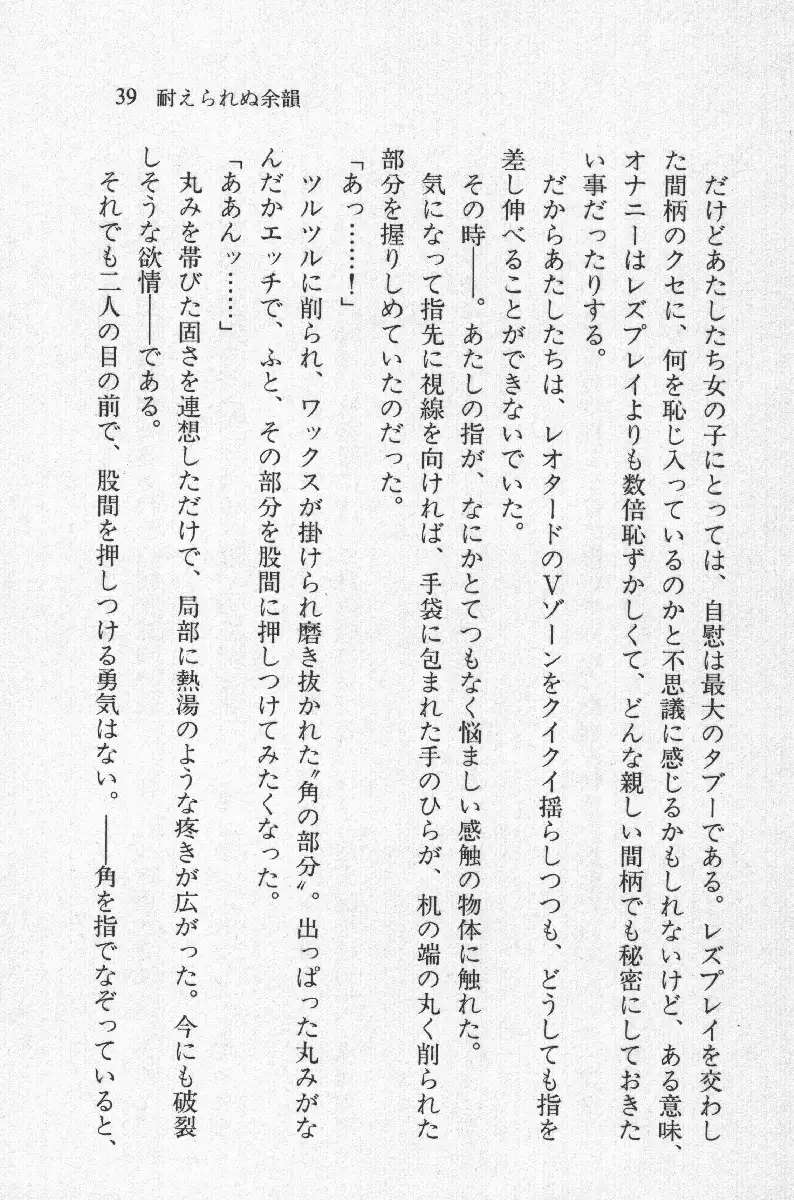 39 耐えられぬ余韻
だけどあたしたち女の子にとっては、自慰は最大のタブーである。レズプレイを交わし
た間柄のクセに、何を恥じ入っているのかと不思議に感じるかもしれないけど、ある意味、
オナニーはレズプレイよりも数倍恥ずかしくて、どんな親しい間柄でも秘密にしておきた
い事だったりする。
だからあたしたちは、レオタードのVゾーンをクイクイ揺らしつつも、どうしても指を
差し伸べることができないでいた。
その時――。あたしの指が、なにかとてつもなく悩ましい感触の物体に触れた。
気になって指先に視線を向ければ、手袋に包まれた手のひらが、机の端の丸く削られた
部分を握りしめていたのだった。
「あっ……！」
ツルツルに削られ、ワックスが掛けられ磨き抜かれた〝角の部分〟。出っぱった丸みがな
んだかエッチで、ふと、その部分を股間に押しつけてみたくなった。
「ああんッ……」
丸みを帯びた固さを連想しただけで、局部に熱湯のような疼きが広がった。今にも破裂
しそうな欲情――である。
それでも二人の目の前で、股間を押しつける勇気はない。――角を指でなぞっていると、